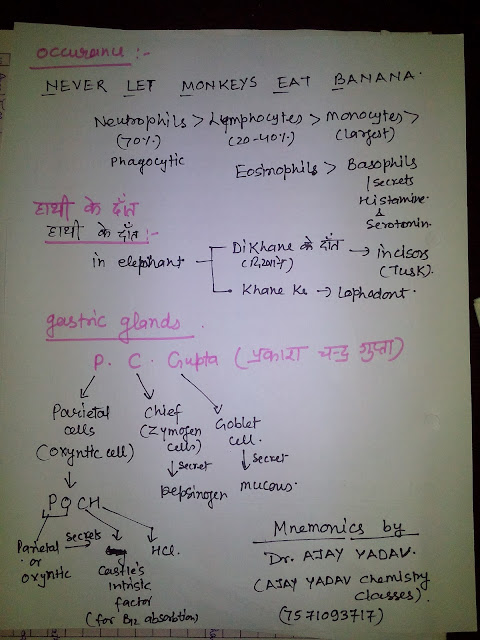 occurance :-
NEVER LET MONKEYS EAT BANANA.
Neutrophils > Lymphocytes > Monocytes >
(70%) (20-40%) (largest)
Phagocytic
Eosinophils > Basophils
secrets
Histamine
&
Serotonin.
हाथी के दाँत
हाथी के दाँत :-
in elephant
Dikhane के दाँत → incisors
(दिखाने) (Tusk).
Khane Ke → Lophodont.
gastric glands.
P. C. Gupta (प्रकाश चन्द्र गुप्ता)
Parietal cells (oxyntic cell)
Chief (Zymogen cells)
Goblet cell.
↓ secret ↓ secret
pepsinogen mucous.
POCH
Parietal or oxyntic
secrets
Castle's intrisic factor
(for B12 absorbtion)
HCl.
Mnemonics by
Dr. AJAY YADAV.
(AJAY YADAV chemistry
classes).
(7571093717)